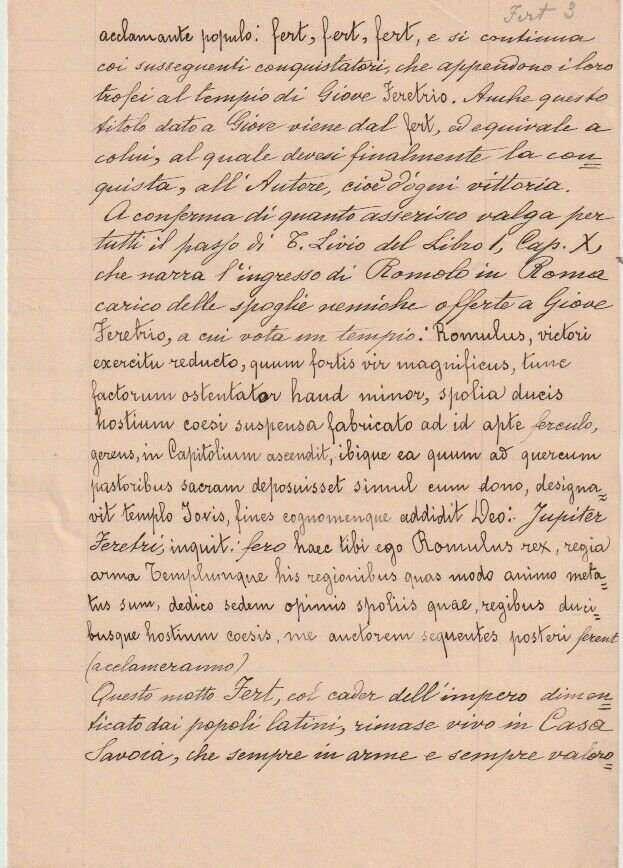 Fert 3
acclamante populo: fert, fert, fert, e si continua
coi susseguenti conquistatori, che appendono i loro
trofei al tempio di Giove Feretrio. Anche questo
titolo dato a Giove viene dal fert, ed equivale a
colui, al quale devesi finalmente la con=
quista, all'Autore, cioè d'ogni vittoria.
A conferma di quanto asserisco valga per
tutti il passo di T. Livio del Libro I, Cap. X,
che narra l'ingresso di Romolo in Roma
carico delle spoglie nemiche offerte a Giove
Feretrio, a cui vota un tempio: Romulus, victori
exercitu reducto, quum fortis vir magnificus, tunc
factorum ostentator haud minor, spolia ducis
hostium coesi suspensa fabricato ad id apte ferculo,
gerens, in Capitolium ascendit, ibique ea quum ad quercum
pastoribus sacram deposuisset simul cum dono, designa=
vit templo Jovis, fines cognomenque addidit Deo: Jupiter
Feretri, inquit: fero haec tibi ego Romulus rex, regia
arma Templumque his regionibus quas modo animo meta=
tus sum, dedico sedem opimis spoliis quae, regibus duci=
busque hostium coesis, me auctorem sequentes posteri ferent
(acclameranno)
Questo motto Fert, col cader dell'impero dimen=
ticato dai popoli latini, rimase vivo in Casa
Savoia, che sempre in arme e sempre valoro=